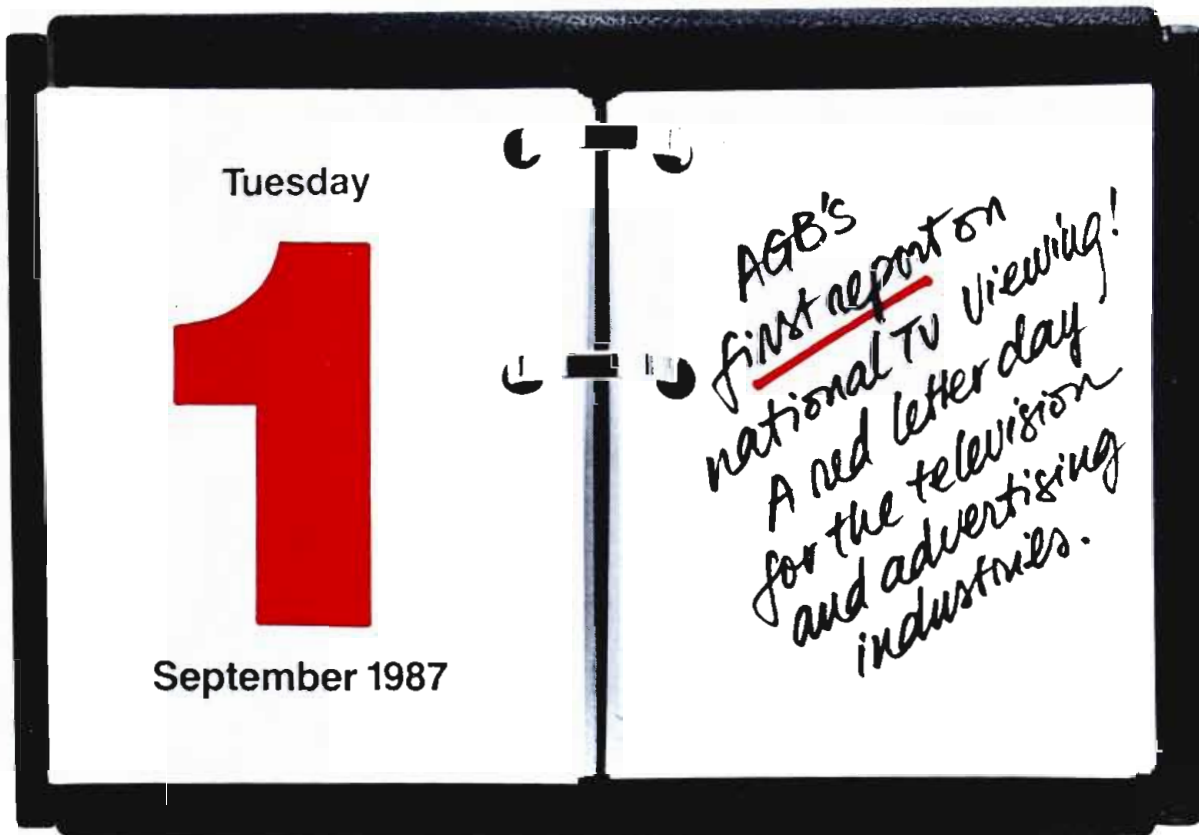 Tuesday
1
September 1987
AGB's
first report on
national TV viewing!
A red letter day
for the television
and advertising
industries.